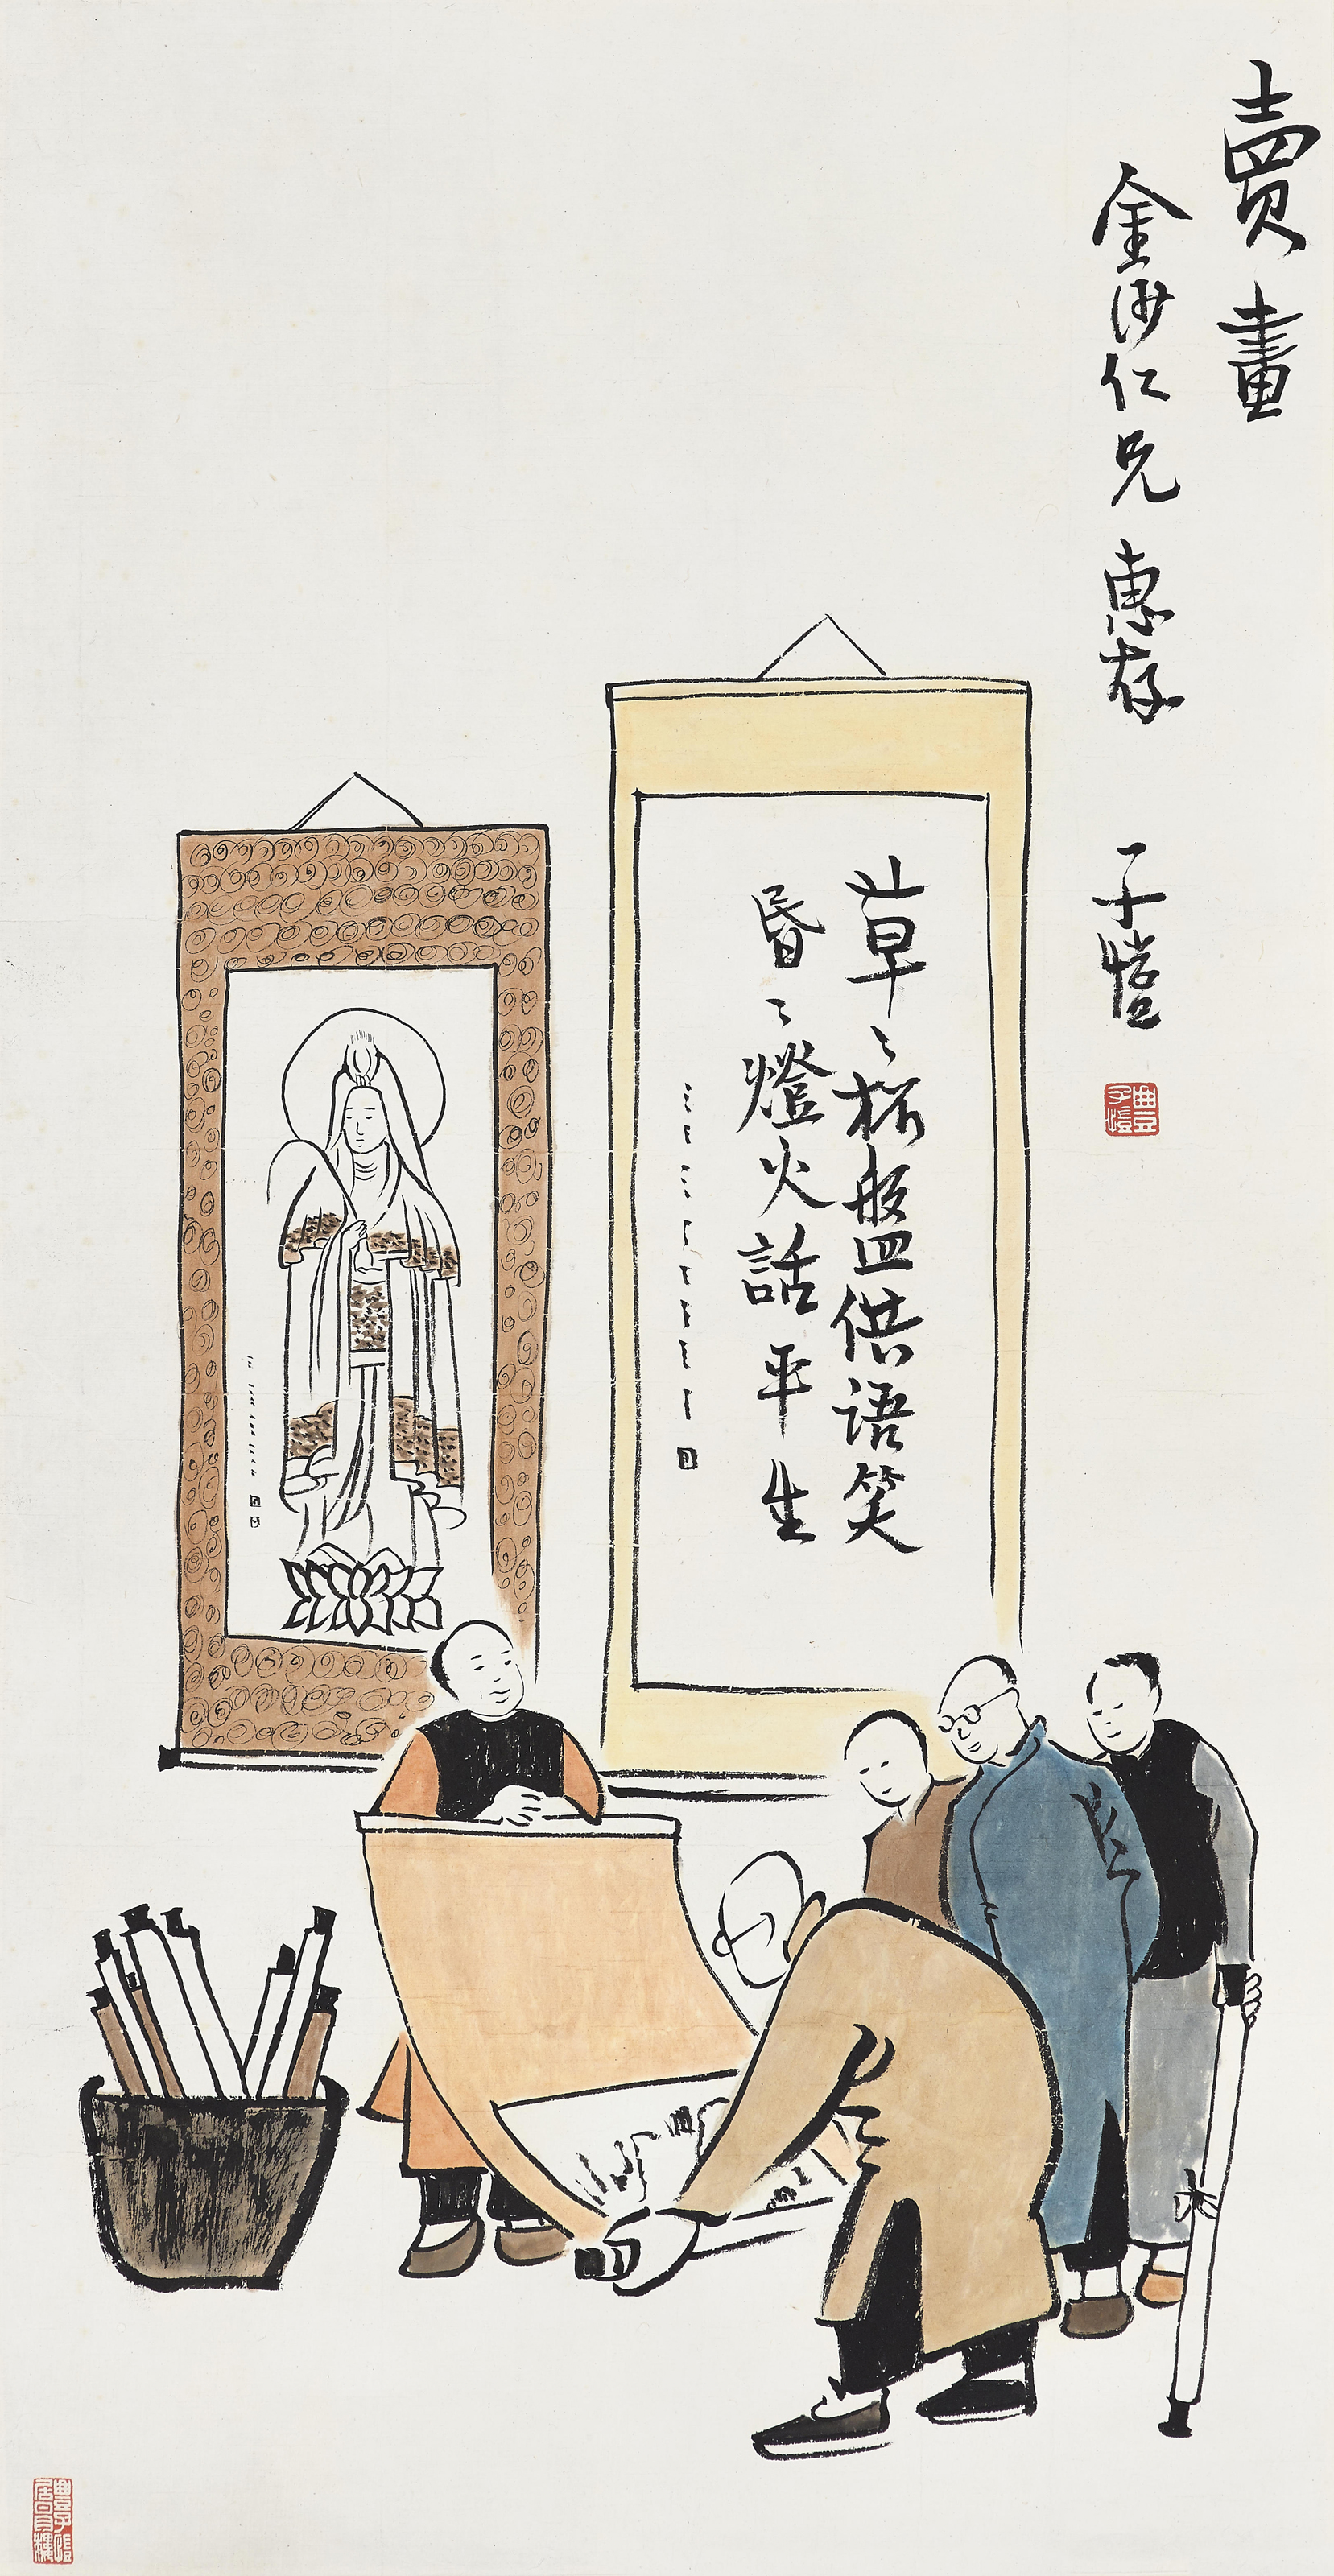 賣畫
金沙仁兄惠存 子愷
豐子愷
草〻杯盤供語笑
昏〻燈火話平生